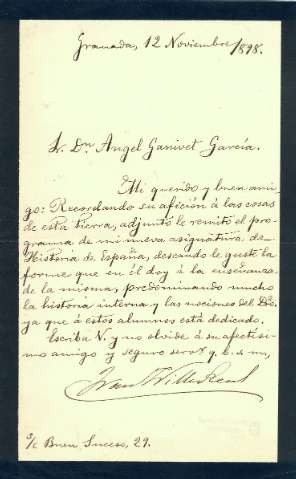 Granada, 12 Noviembre/898.
Sr. Dn. Angel Ganivet García.
Mi querido y buen ami
go: Recordando su afición á las cosas
de esta tierra, adjunto le remito el pro-
grama de mi nueva asignatura de
Historia de España, deseando le guste la
forma que en él doy á la enseñanza
de la misma, predominando mucho
la historia interna y las nociones del Dro.
ya que á estos alumnos está dedicado.
Escriba V. y no olvide á su afectísi
mo amigo y seguro servr. q. b. s. m,
Juan Villa-Real
S/c Buen Suceso, 29.